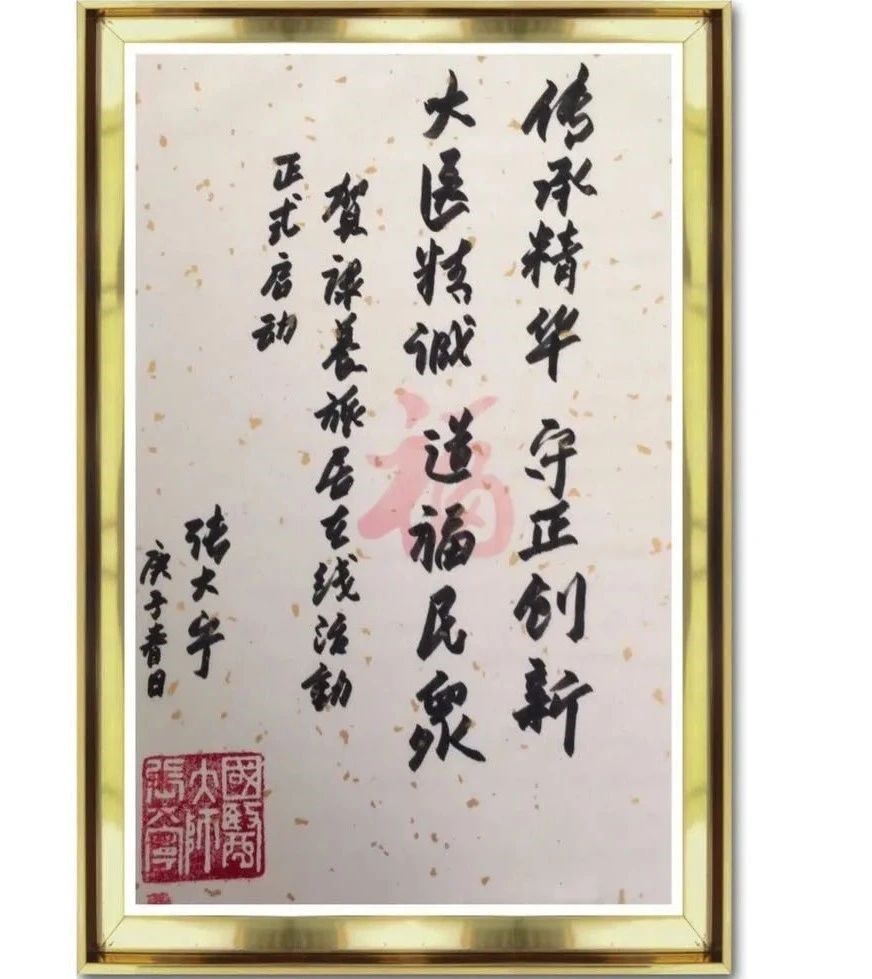 传承精华 守正创新
大医精诚 送福民众
贺康养旅居在线活动
正式启动
张大宁
庚子春日
國醫
大師
張大寧
福